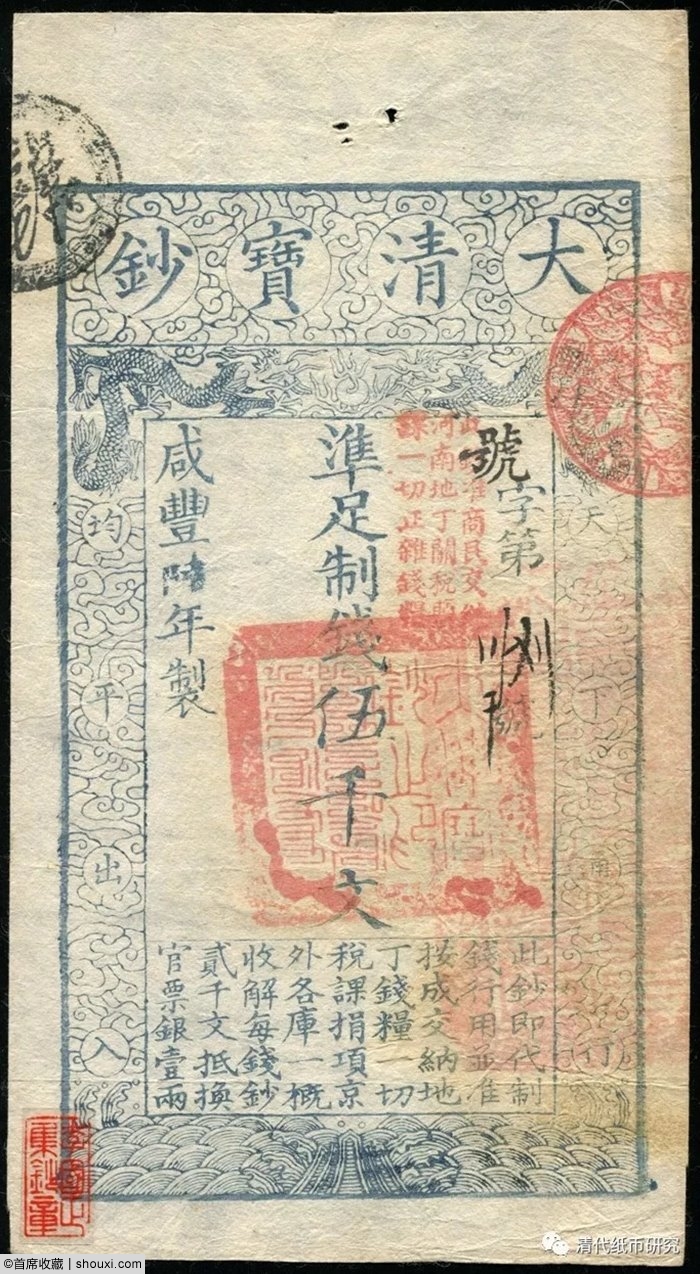 大清寶鈔
天下行
號字第號
河南地丁關稅鹽
課一切正雜錢糧
準足制錢伍千文
咸豐陸年製
均平出入
此鈔即代制
錢行用並准
按成交納地
丁錢糧一切
稅課捐項京
外各庫一概
收解每錢鈔
貳千文抵換
官票銀壹兩
©首席收藏 | shouxi.com
清代纸币研究